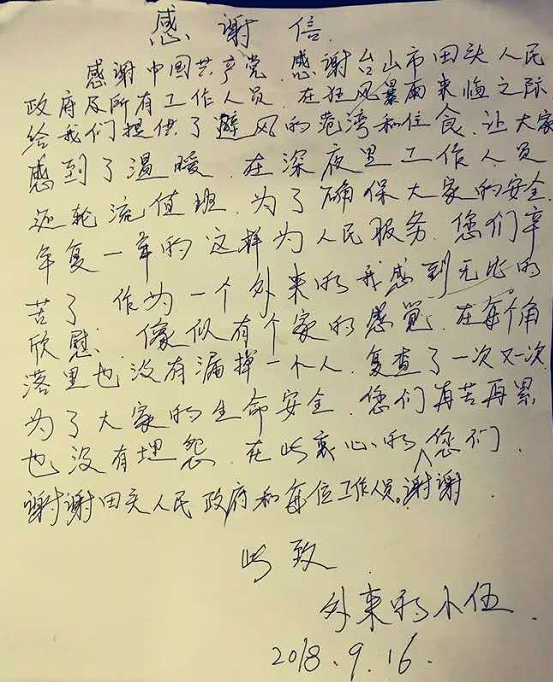 感谢信
感谢中国共产党 感谢台山市田头人民
政府及所有工作人员.在狂风暴雨来临之际
给我们提供了避风的港湾和住食.让大家
感到了温暖.在深夜里工作人员
还轮流值班.为了确保大家的安全.
年复一年的这样为人民服务.您们辛
苦了 作为一个外来的我感到无比的
欣慰.像似有个家的感觉.在每个角
落里也没有漏掉一个人.复查了一次又一次
为了大家的生命安全.您们再苦再累
也没有埋怨.在此衷心的您们.
谢谢田头人民政府和每位工作人员。谢谢.
此致
外来的小伍
2018.9.16.